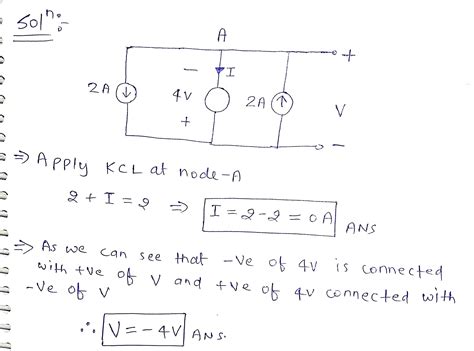 Solⁿ:-
A
+
−
I
2A
4V
2A
V
+
−
⇒ Apply KCL at node-A
2 + I = 2 ⇒ I = 2-2 = 0A ANS
⇒ As we can see that -Ve of 4V is connected
with +ve of V and +ve of 4V connected with
-Ve of V
∴ V = -4V ANS.